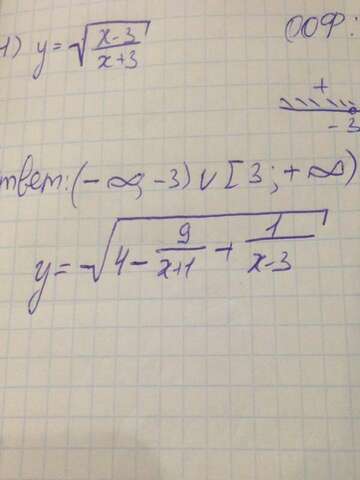 1) y = √((x-3)/(x+3)) ООФ:
+
-3
твет: (-∞; -3) ∪ [3; +∞)
y = √(4 - 9/(x+1) + 1/(x-3))